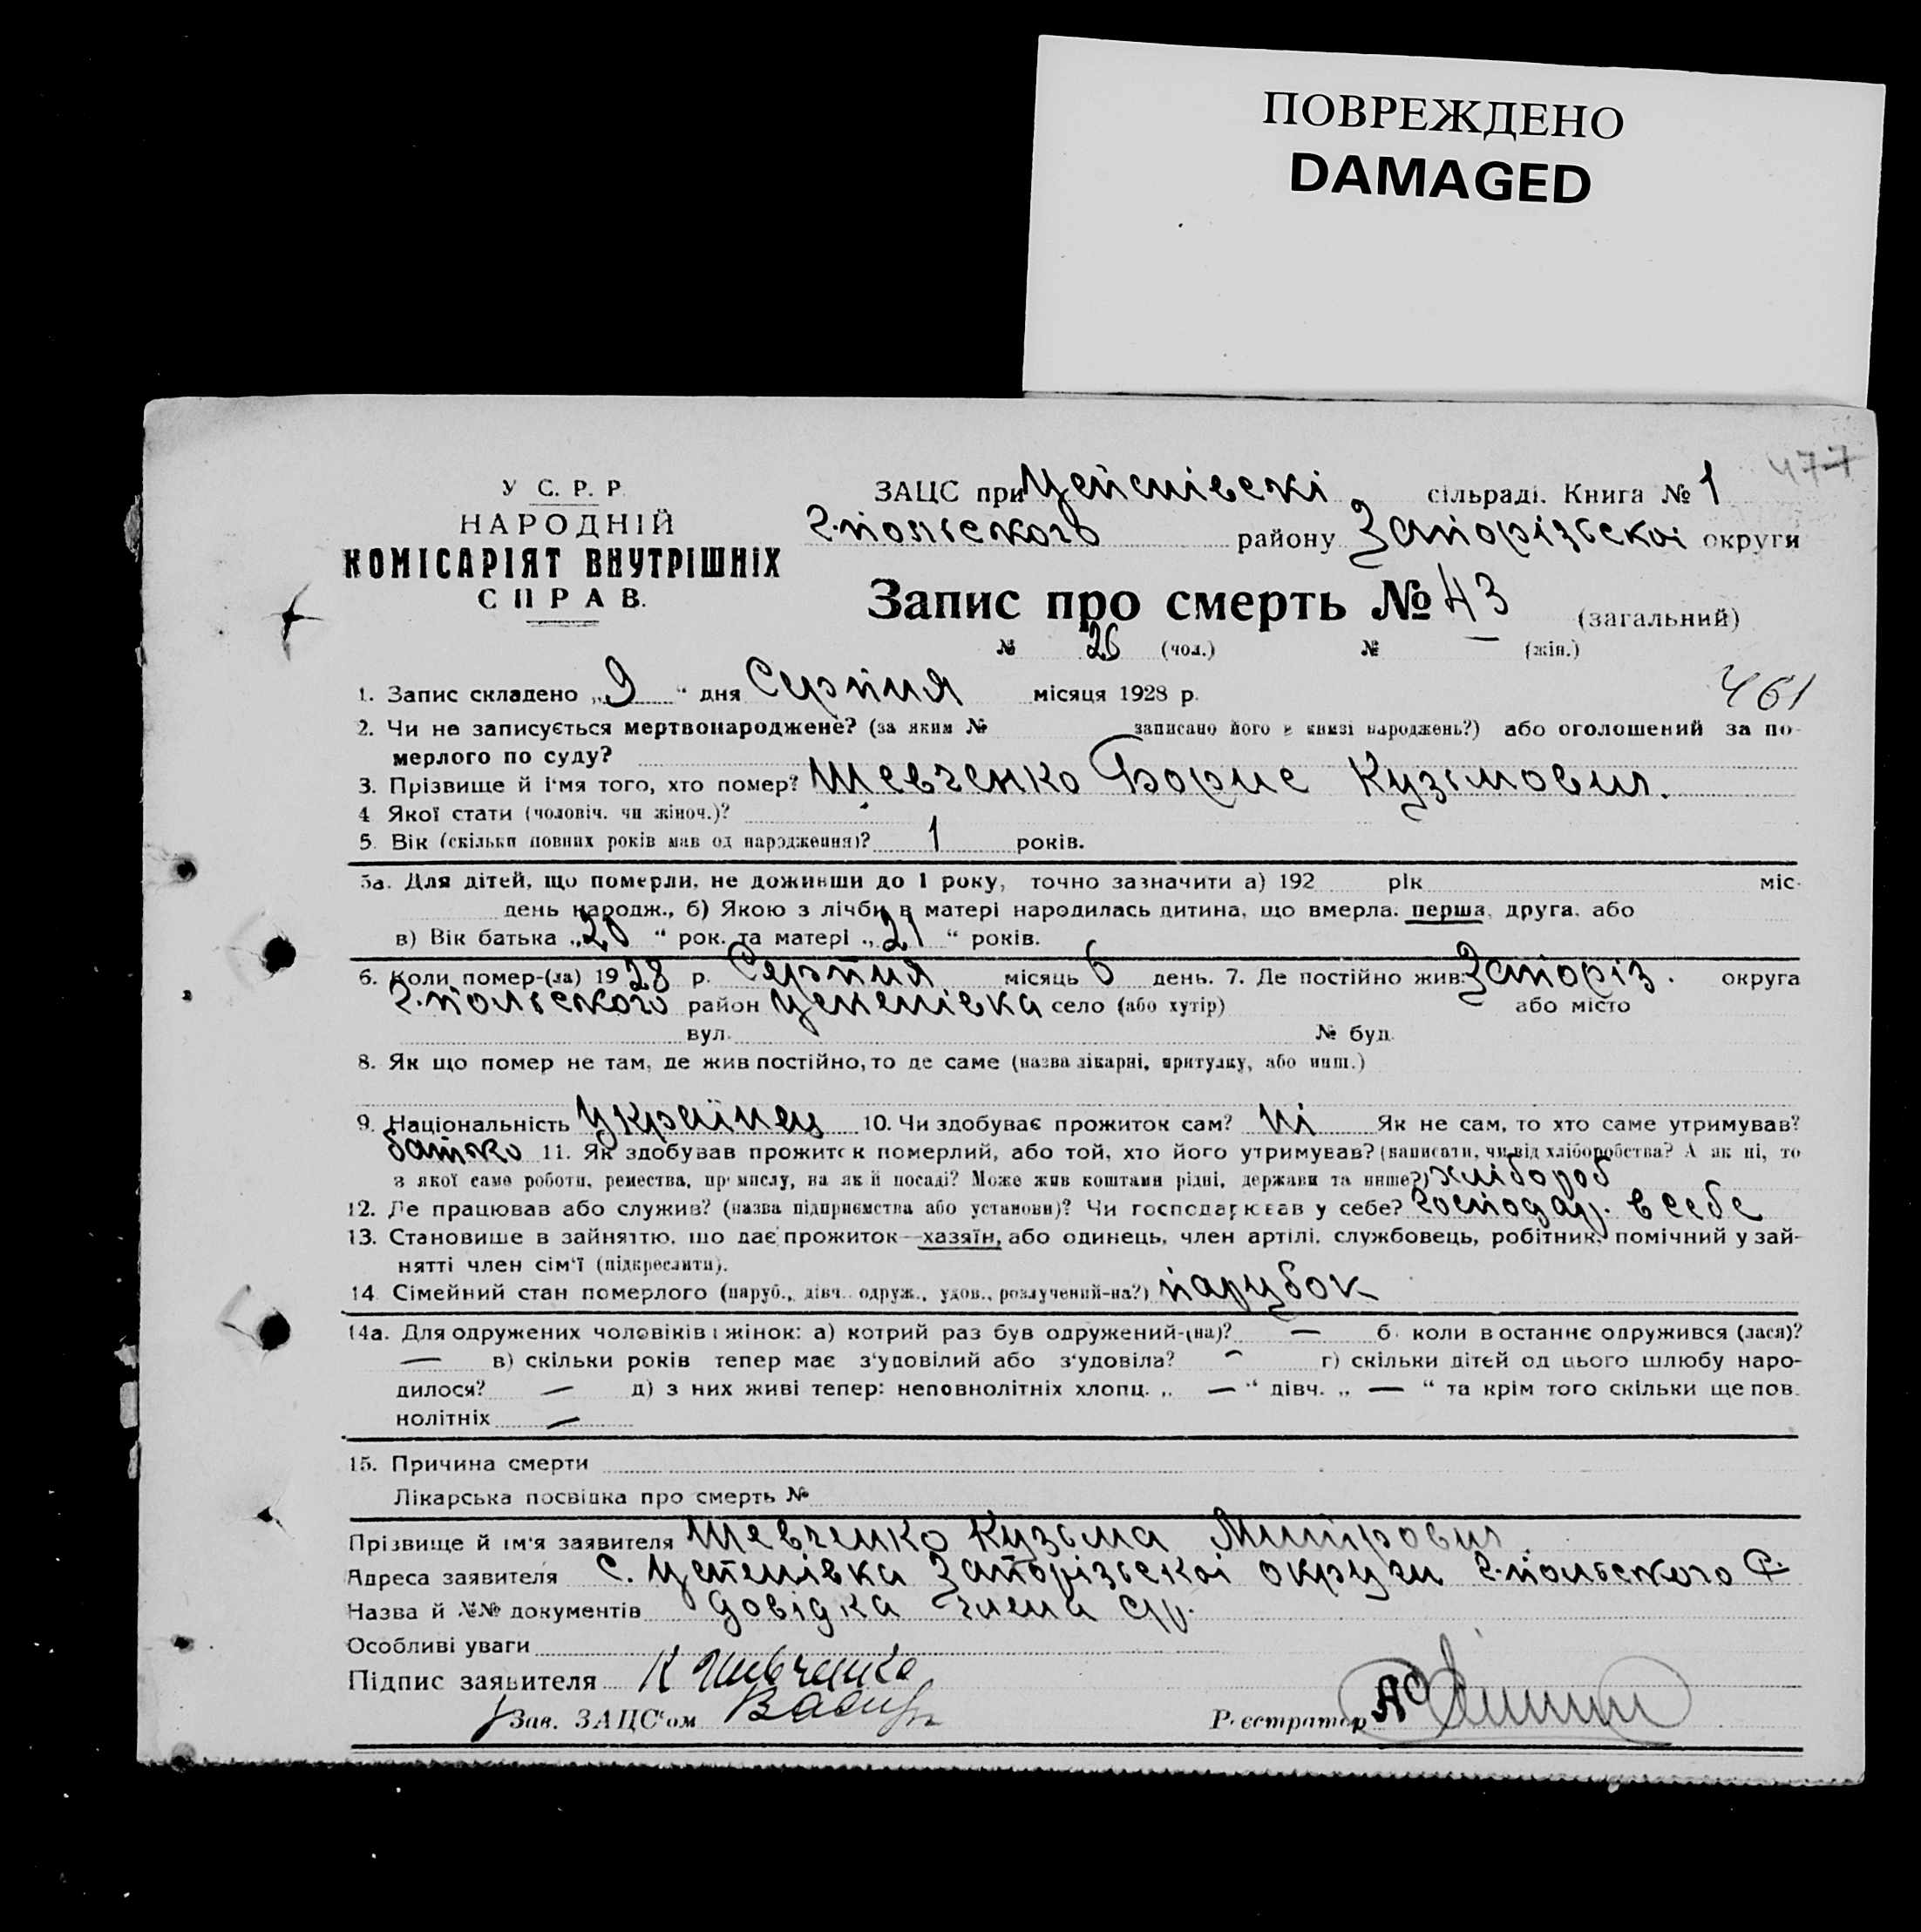 ПОВРЕЖДЕНО
DAMAGED
477
У С. Р. Р.
НАРОДНІЙ
КОМІСАРІЯТ ВНУТРІШНІХ
СПРАВ.
ЗАЦС при сільраді. Книга № 1
г.польського району Запорізської округи
Запис про смерть № 43 (загальний)
№ 26 (чол.) № — (жін.)
461
1. Запис складено „9“ дня Серпня місяця 1928 р.
2. Чи не записується мертвонароджене? (за яким № записано його в книзі народжень?) або оголошений за по-
мерлого по суду?
3. Прізвище й ім'я того, хто помер? Шевченко Борис Кузьмович.
4. Якої стати (чоловіч. чи жіноч.)?
5. Вік (скільки повних років мав од народження)? 1 років.
5а. Для дітей, що померли, не доживши до 1 року, точно зазначити а) 192 рік міс.
день народж., б) Якою з лічби в матері народилась дитина, що вмерла: перша, друга, або
в) Вік батька „20“ рок. та матері „21“ років.
6. Коли помер-(ла) 1928 р. Серпня місяць 6 день. 7. Де постійно жив: Запоріз. округа
г.польського район село (або хутір) або місто
вул. № буд.
8. Як що помер не там, де жив постійно, то де саме (назва лікарні, притулку, або инш.)
9. Національність Українец 10. Чи здобуває прожиток сам? ні Як не сам, то хто саме утримував?
батько 11. Як здобував прожиток померлий, або той, хто його утримував? (написати, чи від хліборобства? А як ні, то
з якої саме роботи, ремества, промислу, на якій посаді? Може жив коштами рідні, держави та инше?) хлібороб
12. Де працював або служив? (назва підприємства або установи)? Чи господарював у себе? господар. в себе
13. Становище в зайняттю, що дає прожиток—хазяїн, або одинець, член артілі, службовець, робітник, помічний у зай-
нятті член сім'ї (підкреслити).
14. Сімейний стан померлого (паруб., дівч. одруж., удов., розлучений-на?) парубок
14а. Для одружених чоловіків і жінок: а) котрий раз був одружений-(на)? — б) коли востаннє одружився (лася)?
— в) скільки років тепер має з'удовілий або з'удовіла? — г) скільки дітей од цього шлюбу наро-
дилося? — д) з них живі тепер: неповнолітніх хлопц. „—“ дівч. „—“ та крім того скільки ще пов.
нолітніх —
15. Причина смерти
Лікарська посвідка про смерть №
Прізвище й ім'я заявителя Шевченко Кузьма Митрович
Адреса заявителя с. Запорізської округи г.польського Р.
Назва й №№ документів довідка члена с/р.
Особливі уваги
Підпис заявителя К Шевченко
Зав. ЗАЦС'ом
Реєстратор